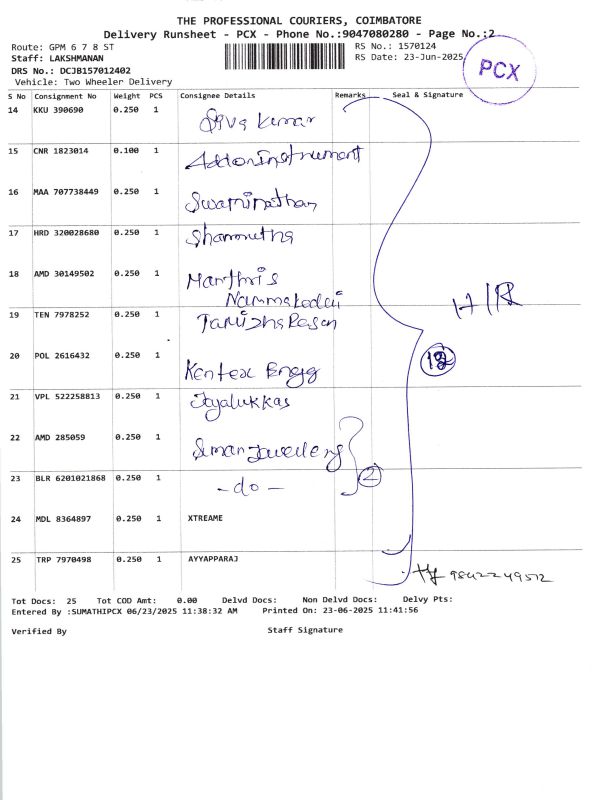 THE PROFESSIONAL COURIERS, COIMBATORE
Delivery Runsheet - PCX - Phone No.:9047080280 - Page No.:2
Route: GPM 6 7 8 ST
RS No.: 1570124
Staff: LAKSHMANAN
RS Date: 23-Jun-2025
DRS No.: DCJB157012402
PCX
Vehicle: Two Wheeler Delivery
S No Consignment No Weight PCS Consignee Details Remarks Seal & Signature
14 KKU 390690 0.250 1 Siva Kumar
15 CNR 1823014 0.100 1 Addon instrument
16 MAA 707738449 0.250 1 Swaminathan
17 HRD 320028680 0.250 1 Shanmutha
18 AMD 30149502 0.250 1 Manthris
Nammakodai
H/R
19 TEN 7978252 0.250 1 Tamizhakasan
20 POL 2616432 0.250 1 Kentex Engg
12
21 VPL 522258813 0.250 1 Joyalukkas
22 AMD 285059 0.250 1 Suman Jewellery
23 BLR 6201021868 0.250 1 - do - 2
24 MDL 8364897 0.250 1 XTREAME
25 TRP 7970498 0.250 1 AYYAPPARAJ
9842249512
Tot Docs: 25 Tot COD Amt: 0.00 Delvd Docs: Non Delvd Docs: Delvy Pts:
Entered By :SUMATHIPCX 06/23/2025 11:38:32 AM Printed On: 23-06-2025 11:41:56
Verified By Staff Signature